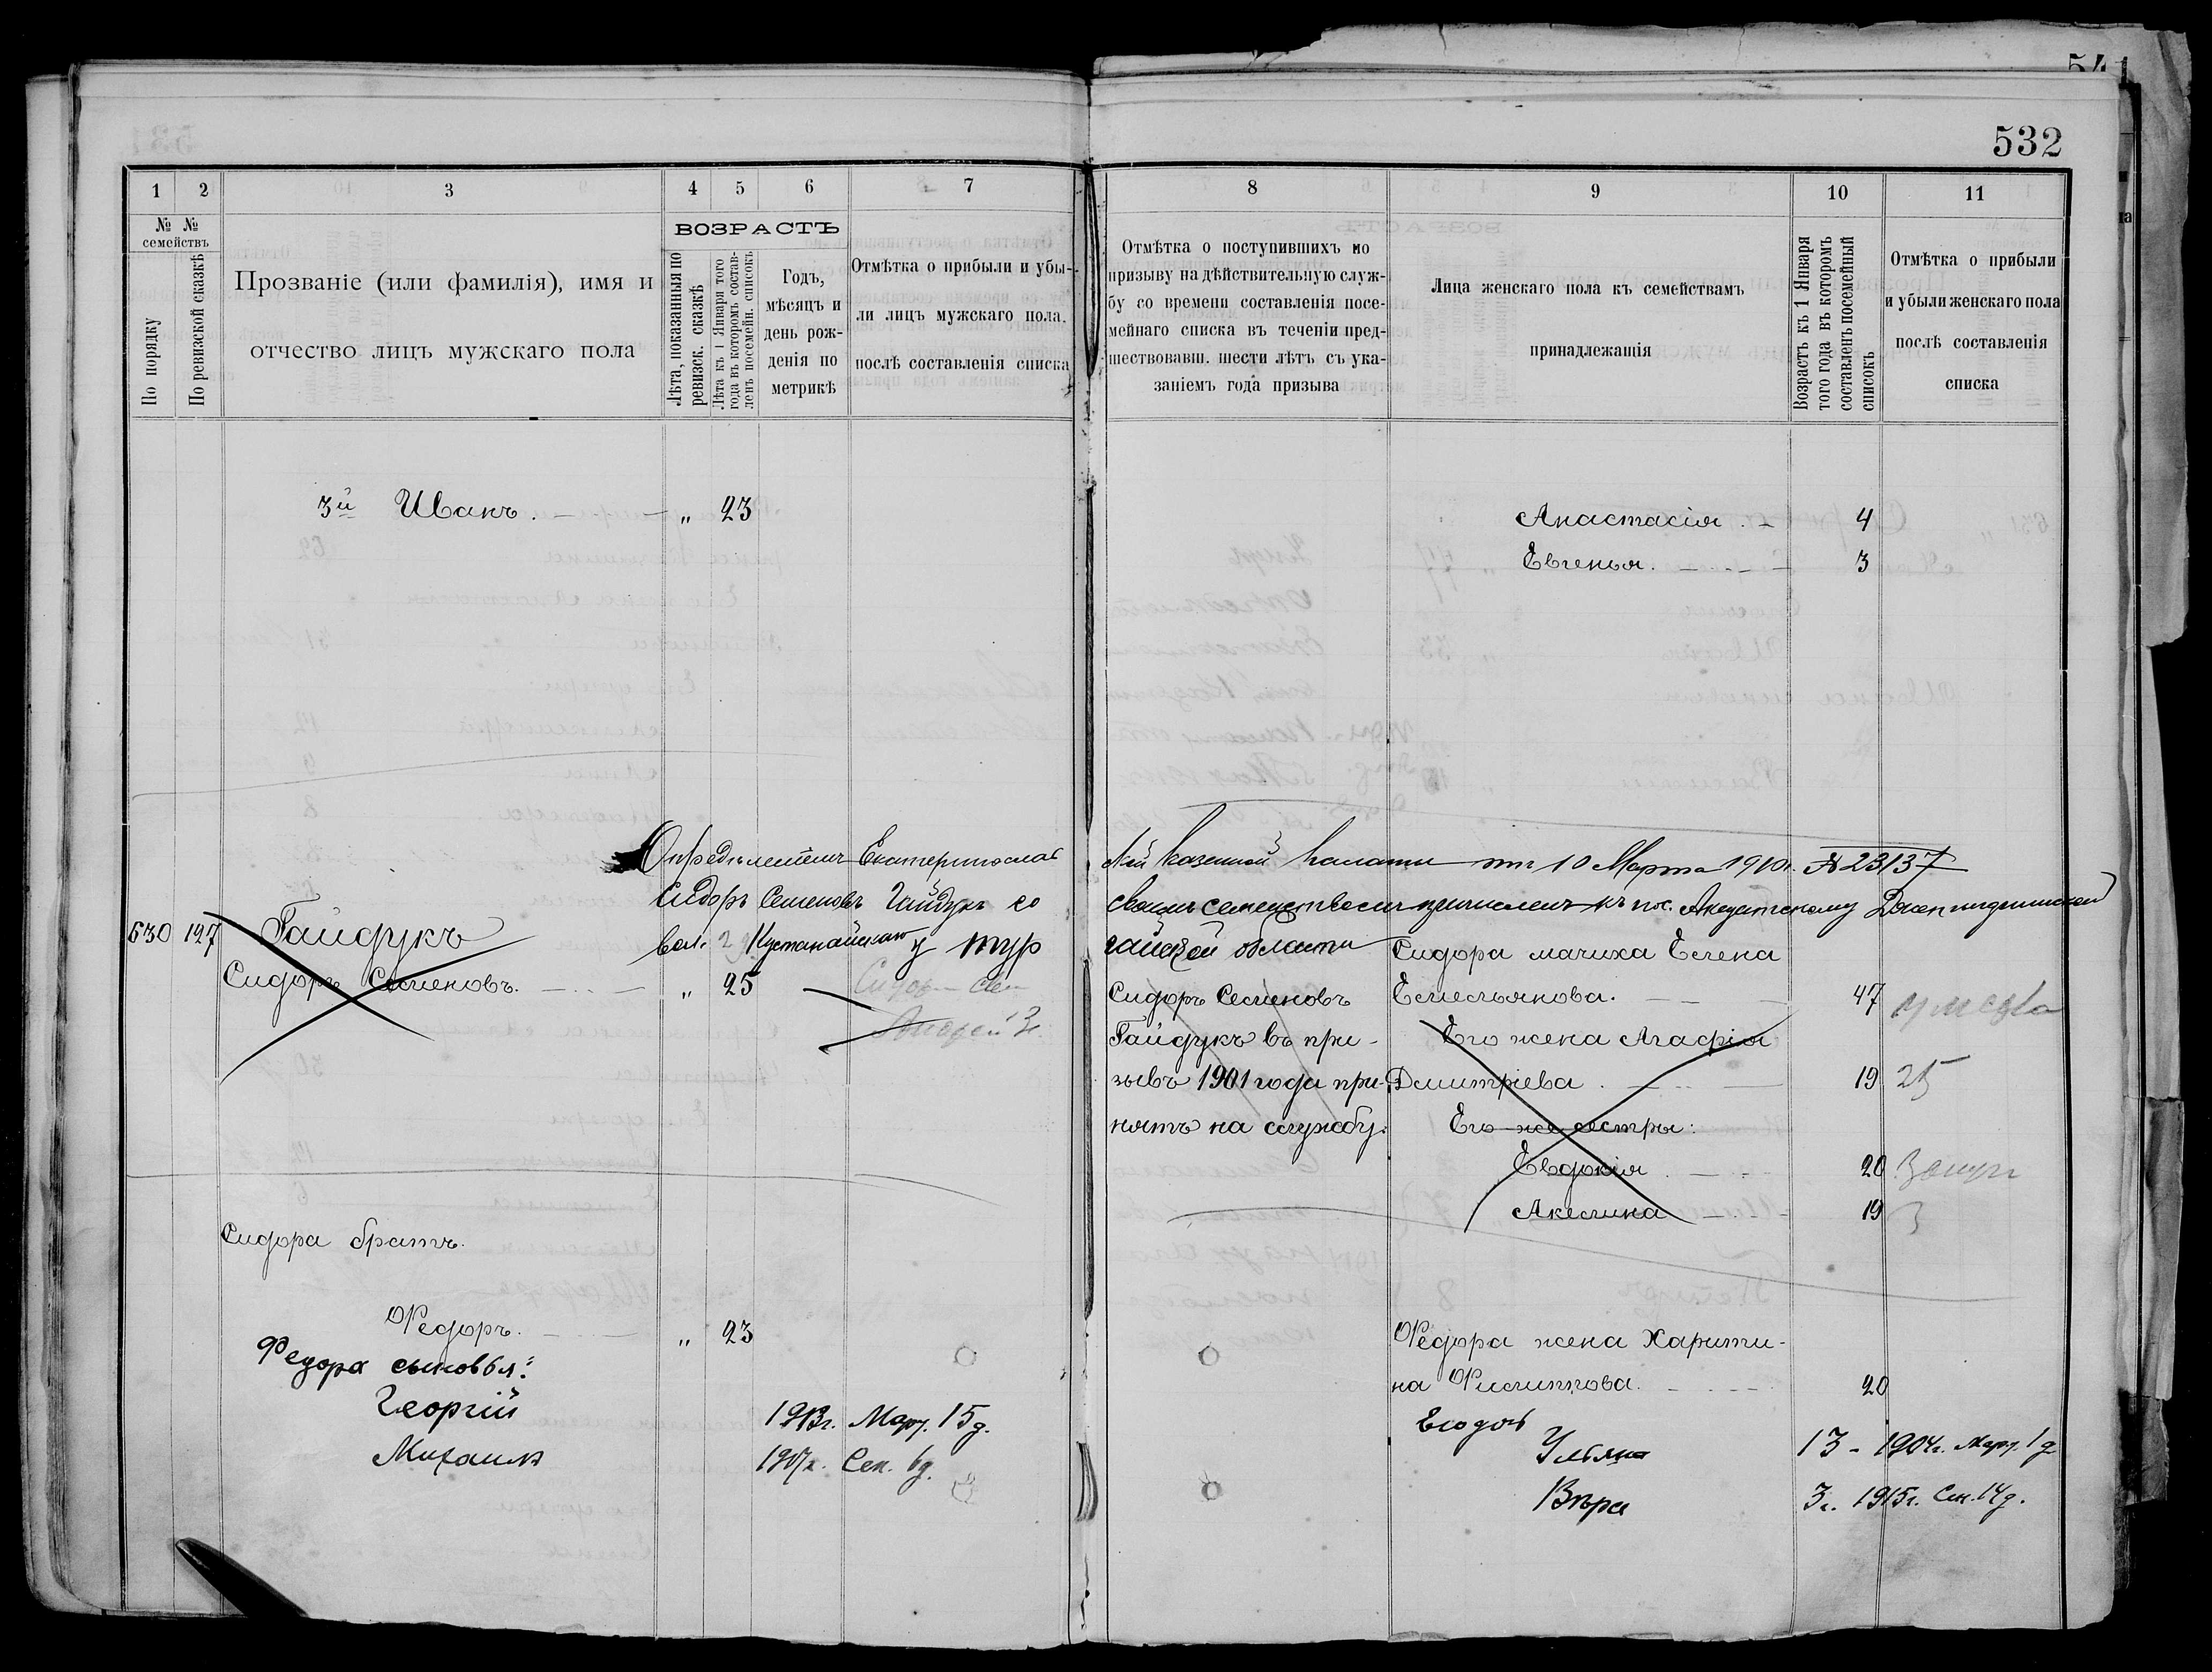 532
1 2 3 4 5 6 7
№ № семействъ
По порядку
По ревизской сказкѣ
Прозваніе (или фамилія), имя и
отчество лицъ мужскаго пола
ВОЗРАСТЪ
Лѣта, показанныя по
ревизск. сказкѣ
Лѣта къ 1 Января того
года въ которомъ состав-
ленъ посемейн. списокъ
Годъ,
мѣсяцъ и
день рож-
денія по
метрикѣ
Отмѣтка о прибыли и убы-
ли лицъ мужскаго пола
послѣ составленія списка
8 9 10 11
Отмѣтка о поступившихъ по
призыву на дѣйствительную служ-
бу со времени составленія посе-
мейнаго списка въ теченіи пред-
шествовавш. шести лѣтъ съ ука-
заніемъ года призыва
Лица женскаго пола къ семействамъ
принадлежащія
Возрастъ къ 1 Января
того года въ которомъ
составленъ посемейный
списокъ
Отмѣтка о прибыли
и убыли женскаго пола
послѣ составленія
списка
3й Иванъ. „ 23
Анастасія. 4
Евгенья. 3
Опредѣленіемъ Екатеринослав
ской Казенной Палаты отъ 10 Марта 1910г. № 23137
Сидоръ Семеновъ Гайдукъ со
своимъ семействомъ причисленъ къ пос.
вол. Кустанайскаго у Тур
гайской области
630 127 Гайдукъ
Сидоръ Семеновъ. „ 25
Сидоръ Семеновъ
Гайдукъ въ при-
зывъ 1901 года при-
нятъ на службу.
Сидора мачиха Елена
Емельянова. 47
Его жена Агафія
Дмитріева. 19 25
Его же сестры:
Евдокія 20
Акелина 19
Сидора братъ.
Федоръ. „ 23
Федора сыновья:
Георгій 1913г. Мар. 15д.
Михаилъ 1907г. Сен. 6д.
Федора жена Харити-
на Филиппова. 20
Ульяна 13 - 1904г. Мар. 1д
Вѣра 3г. 1915г. Сен. 14д.